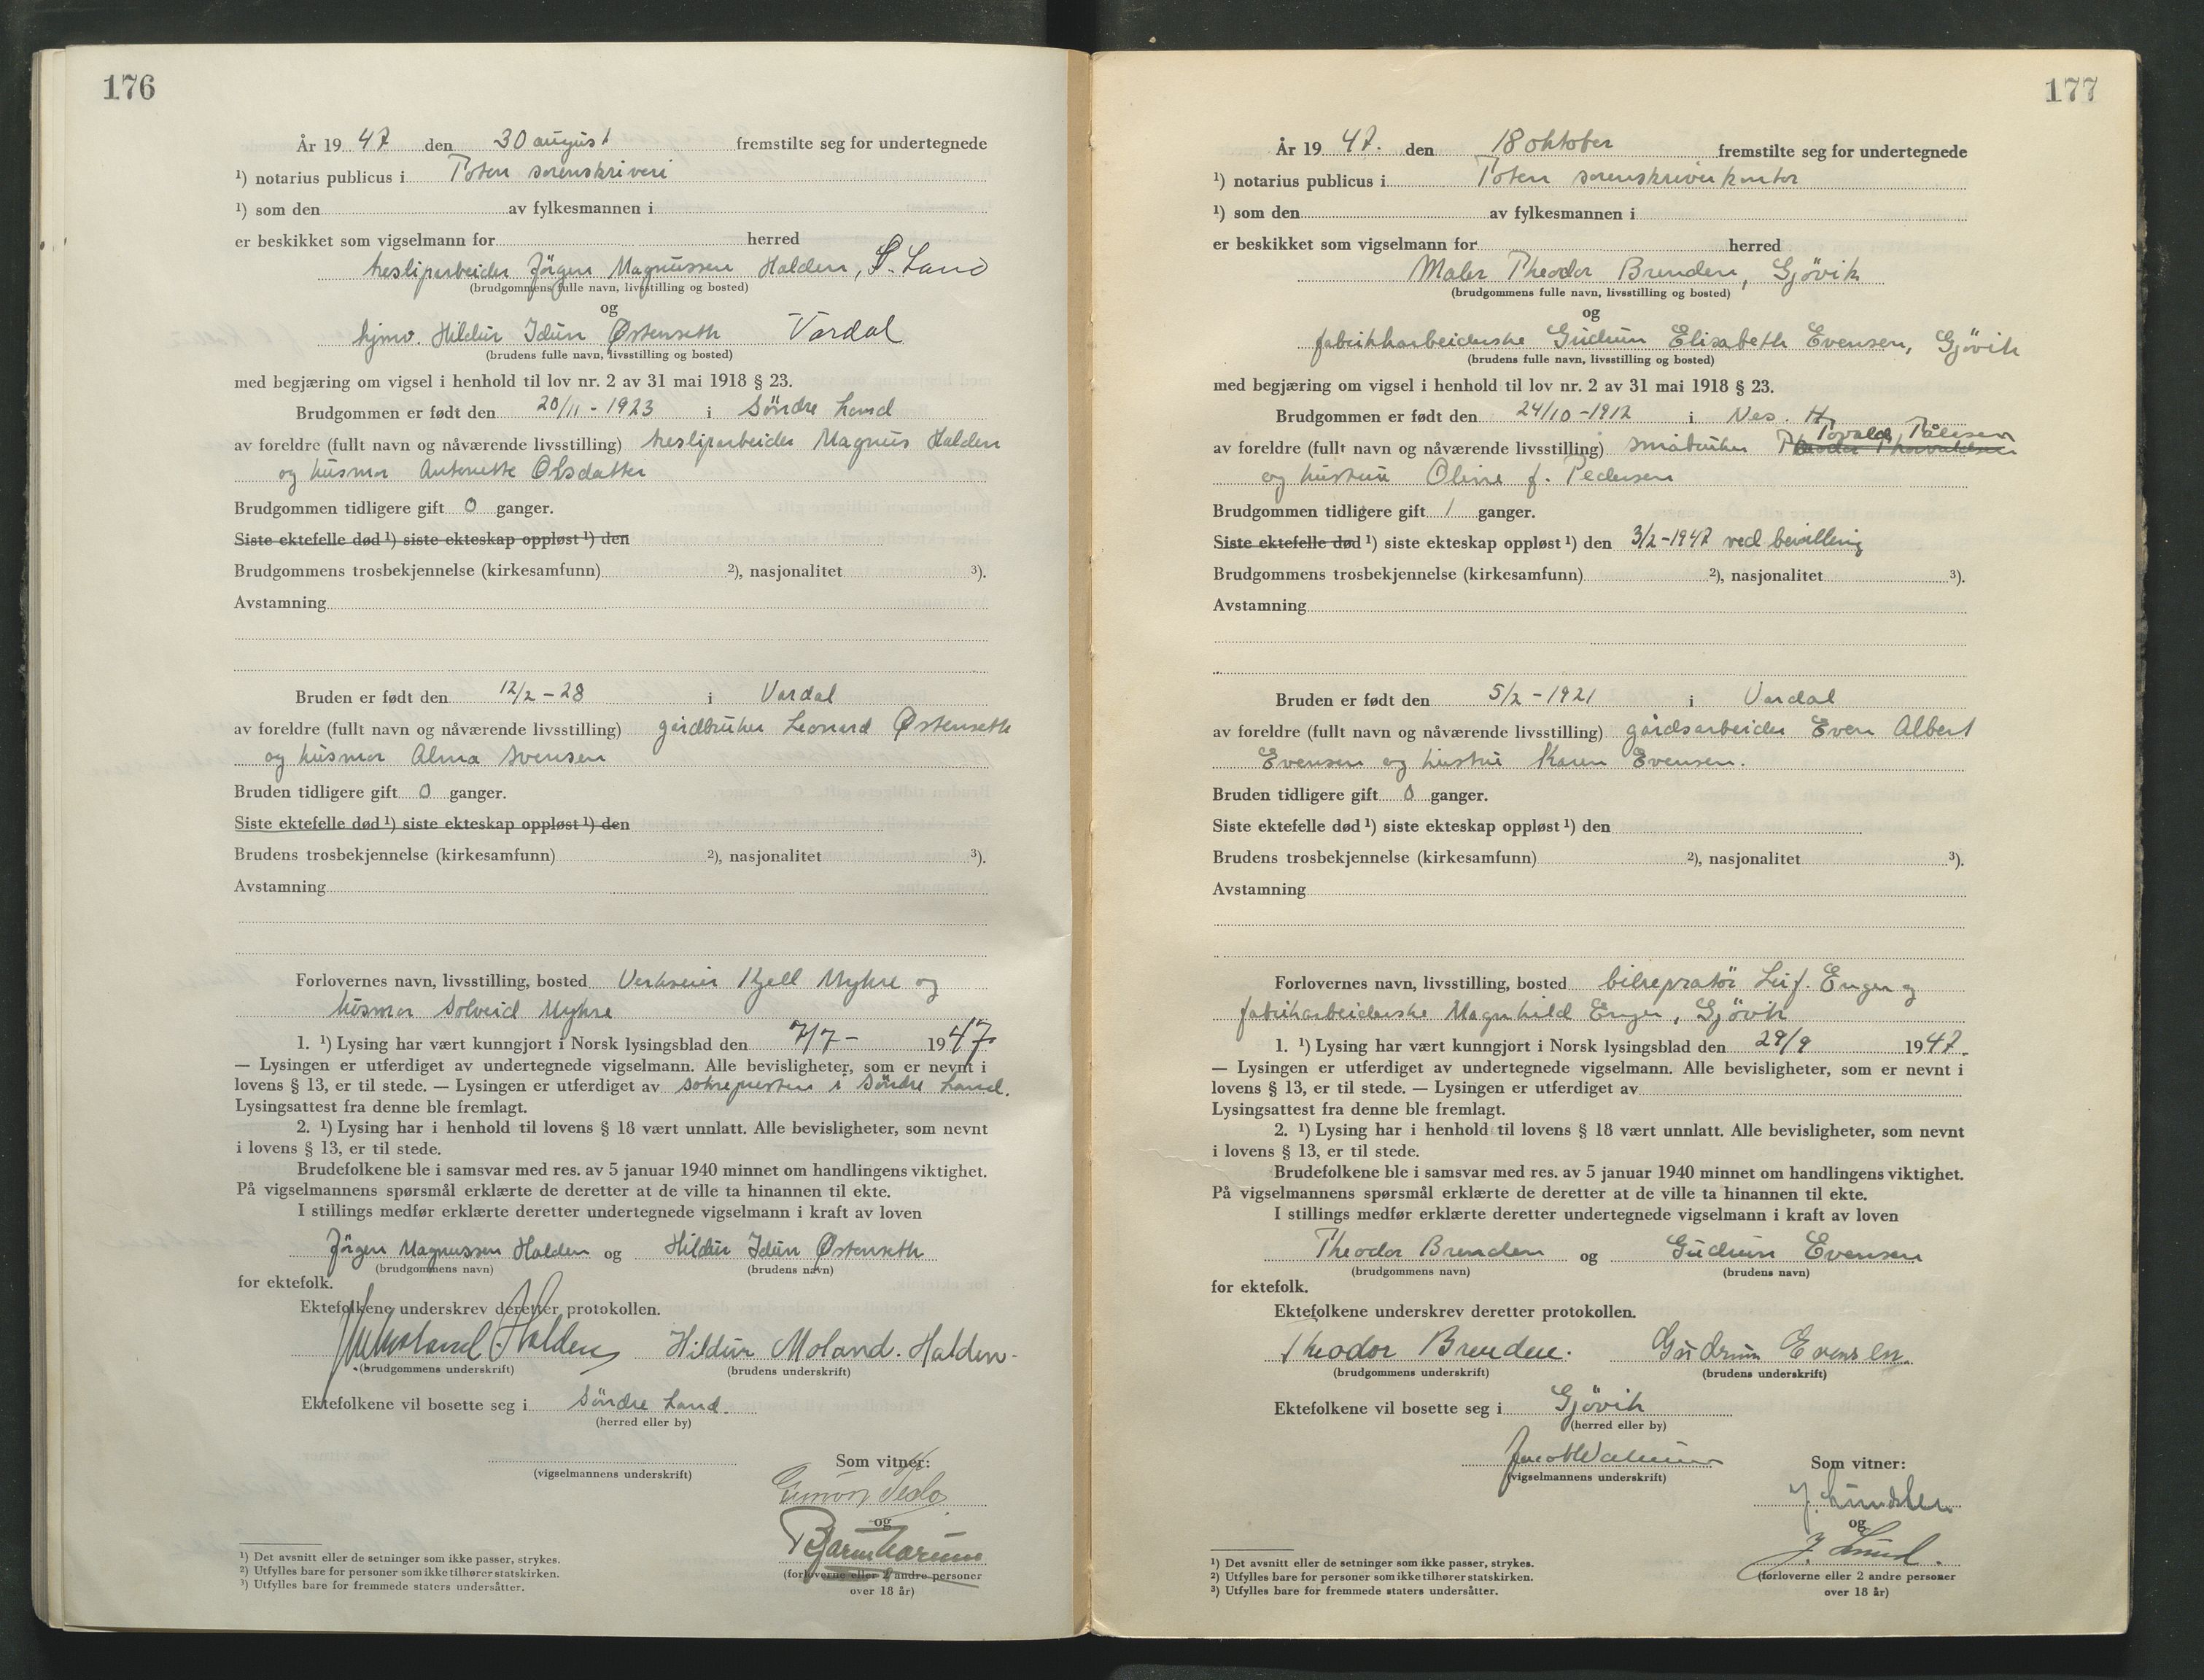 176
År 1947 den 30 august fremstilte seg for undertegnede
¹) notarius publicus i Toten sorenskriveri
¹) som den av fylkesmannen i
er beskikket som vigselmann for herred
tresliparbeider Jörgen Magnussen Halden, S. Land
(brudgommens fulle navn, livsstilling og bosted)
og
hjmv. Hildur Idun Østenseth Vardal
(brudens fulle navn, livsstilling og bosted)
med begjæring om vigsel i henhold til lov nr. 2 av 31 mai 1918 § 23.
Brudgommen er født den 20/11 - 1923 i Söndre Land
av foreldre (fullt navn og nåværende livsstilling) tresliparbeider Magnus Halden
og husmor Antonette Olsdatter
Brudgommen tidligere gift 0 ganger.
Siste ektefelle død ¹) siste ekteskap oppløst ¹) den
Brudgommens trosbekjennelse (kirkesamfunn) ²), nasjonalitet ³).
Avstamning
Bruden er født den 12/2 - 28 i Vardal
av foreldre (fullt navn og nåværende livsstilling) gårdbruker Leonard Østenseth
og husmor Alma Svensen
Bruden tidligere gift 0 ganger.
Siste ektefelle død ¹) siste ekteskap oppløst ¹) den
Brudens trosbekjennelse (kirkesamfunn) ²), nasjonalitet ³).
Avstamning
Forlovernes navn, livsstilling, bosted Verkseier Kjell Myhre og
husmor Solveid Myhre
1. ¹) Lysing har vært kunngjort i Norsk lysingsblad den 7/7 - 1947
— Lysingen er utferdiget av undertegnede vigselmann. Alle bevisligheter, som er nevnt i
lovens § 13, er til stede. — Lysingen er utferdiget av soknepresten i Söndre Land.
Lysingsattest fra denne ble fremlagt.
2. ¹) Lysing har i henhold til lovens § 18 vært unnlatt. Alle bevisligheter, som nevnt
i lovens § 13, er til stede.
Brudefolkene ble i samsvar med res. av 5 januar 1940 minnet om handlingens viktighet.
På vigselmannens spørsmål erklærte de deretter at de ville ta hinannen til ekte.
I stillings medfør erklærte deretter undertegnede vigselmann i kraft av loven
Jörgen Magnussen Halden og Hildur Idun Østenseth
(brudgommens navn) (brudens navn)
for ektefolk.
Ektefolkene underskrev deretter protokollen.
Halden Hildur Moland. Halden.
(brudgommens underskrift) (brudens underskrift)
Ektefolkene vil bosette seg i Söndre Land.
(herred eller by)
(vigselmannens underskrift) Som vitner:
Gunvor
og
(forloverne eller 2 andre personer
over 18 år)
¹) Det avsnitt eller de setninger som ikke passer, strykes.
²) Utfylles bare for personer som ikke tilhører statskirken.
³) Utfylles bare for fremmede staters undersåtter.
177
År 1947. den 18 oktober fremstilte seg for undertegnede
¹) notarius publicus i Toten sorenskriverkontor
¹) som den av fylkesmannen i
er beskikket som vigselmann for herred
Maler Theodor Brenden, Gjövik
(brudgommens fulle navn, livsstilling og bosted)
og
fabrikkarbeiderske Gudrun Elisabeth Evensen, Gjövik
(brudens fulle navn, livsstilling og bosted)
med begjæring om vigsel i henhold til lov nr. 2 av 31 mai 1918 § 23.
Brudgommen er født den 24/10 - 1912 i Nes. H.
Torvald Pålesen
av foreldre (fullt navn og nåværende livsstilling) småbruker Theodor Thorvaldsen
og hustru Oline f. Pedersen
Brudgommen tidligere gift 1 ganger.
Siste ektefelle død ¹) siste ekteskap oppløst ¹) den 3/2 - 1947 ved bevilling
Brudgommens trosbekjennelse (kirkesamfunn) ²), nasjonalitet ³).
Avstamning
Bruden er født den 5/2 - 1921 i Vardal
av foreldre (fullt navn og nåværende livsstilling) gårdsarbeider Even Albert
Evensen og hustru Karen Evensen.
Bruden tidligere gift 0 ganger.
Siste ektefelle død ¹) siste ekteskap oppløst ¹) den
Brudens trosbekjennelse (kirkesamfunn) ²), nasjonalitet ³).
Avstamning
Forlovernes navn, livsstilling, bosted bilrepratör Leif. Enger og
fabrikarbeiderske Magnhild Enger, Gjövik
1. ¹) Lysing har vært kunngjort i Norsk lysingsblad den 29/9 1947.
— Lysingen er utferdiget av undertegnede vigselmann. Alle bevisligheter, som er nevnt i
lovens § 13, er til stede. — Lysingen er utferdiget av
Lysingsattest fra denne ble fremlagt.
2. ¹) Lysing har i henhold til lovens § 18 vært unnlatt. Alle bevisligheter, som nevnt
i lovens § 13, er til stede.
Brudefolkene ble i samsvar med res. av 5 januar 1940 minnet om handlingens viktighet.
På vigselmannens spørsmål erklærte de deretter at de ville ta hinannen til ekte.
I stillings medfør erklærte deretter undertegnede vigselmann i kraft av loven
Theodor Brenden og Gudrun Evensen
(brudgommens navn) (brudens navn)
for ektefolk.
Ektefolkene underskrev deretter protokollen.
Theodor Brenden. Gudrun Evensen.
(brudgommens underskrift) (brudens underskrift)
Ektefolkene vil bosette seg i Gjövik
(herred eller by)
(vigselmannens underskrift) Som vitner:
og
J. Lund.
(forloverne eller 2 andre personer
over 18 år)
¹) Det avsnitt eller de setninger som ikke passer, strykes.
²) Utfylles bare for personer som ikke tilhører statskirken.
³) Utfylles bare for fremmede staters undersåtter.